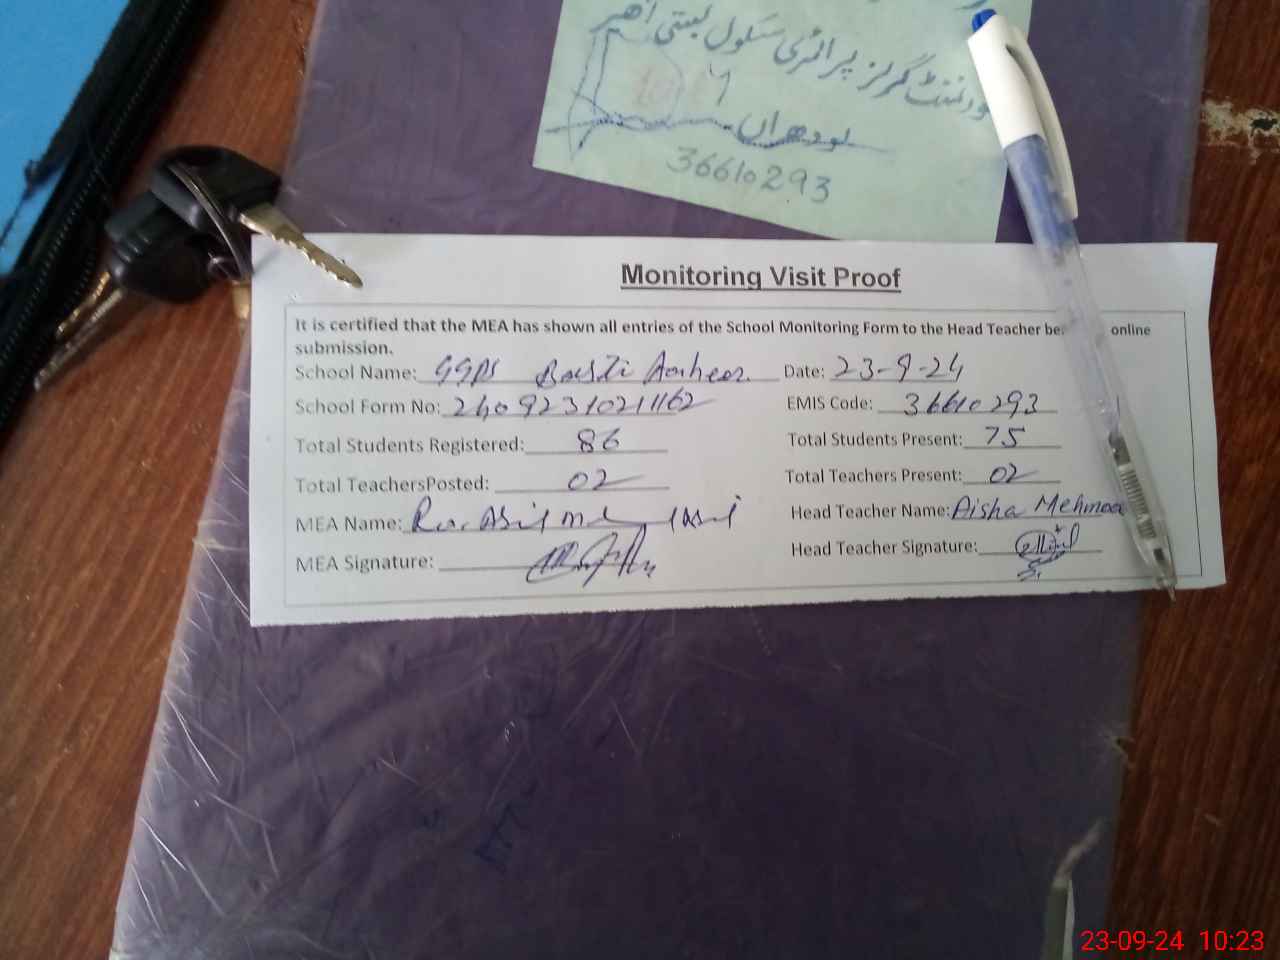 گورنمنٹ گرلز پرائمری سکول بستی اھیر
لودھراں
36610293
Monitoring Visit Proof
It is certified that the MEA has shown all entries of the School Monitoring Form to the Head Teacher online
submission.
School Name: GGPS Basti Aaheer Date: 23-9-24
School Form No: 2409231021162 EMIS Code: 36610293
Total Students Registered: 86 Total Students Present: 75
Total TeachersPosted: 02 Total Teachers Present: 02
MEA Name: Head Teacher Name: Aisha Mehmood
MEA Signature: Head Teacher Signature:
23-09-24 10:23